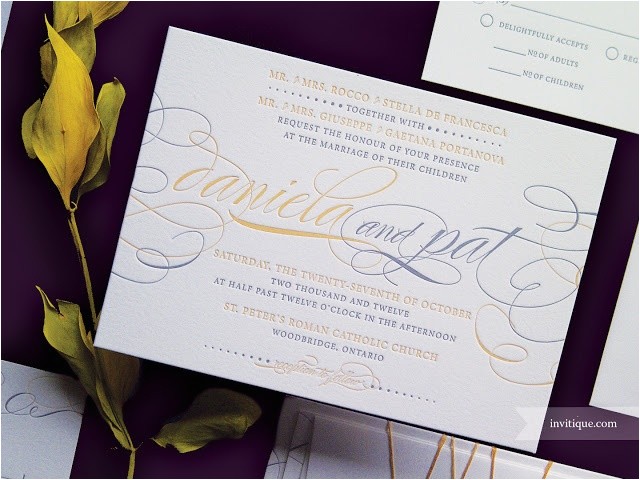 MR. & MRS. ROCCO & STELLA DE FRANCESCA
TOGETHER WITH
MR. & MRS. GIUSEPPE & GAETANA PORTANOVA
REQUEST THE HONOUR OF YOUR PRESENCE
AT THE MARRIAGE OF THEIR CHILDREN
daniela and pat
SATURDAY, THE TWENTY-SEVENTH OF OCTOBER
TWO THOUSAND AND TWELVE
AT HALF PAST TWELVE O'CLOCK IN THE AFTERNOON
ST. PETER'S ROMAN CATHOLIC CHURCH
WOODBRIDGE, ONTARIO
reception to follow
DELIGHTFULLY ACCEPTS
REG
NO OF ADULTS
NO OF CHILDREN
invitique.com